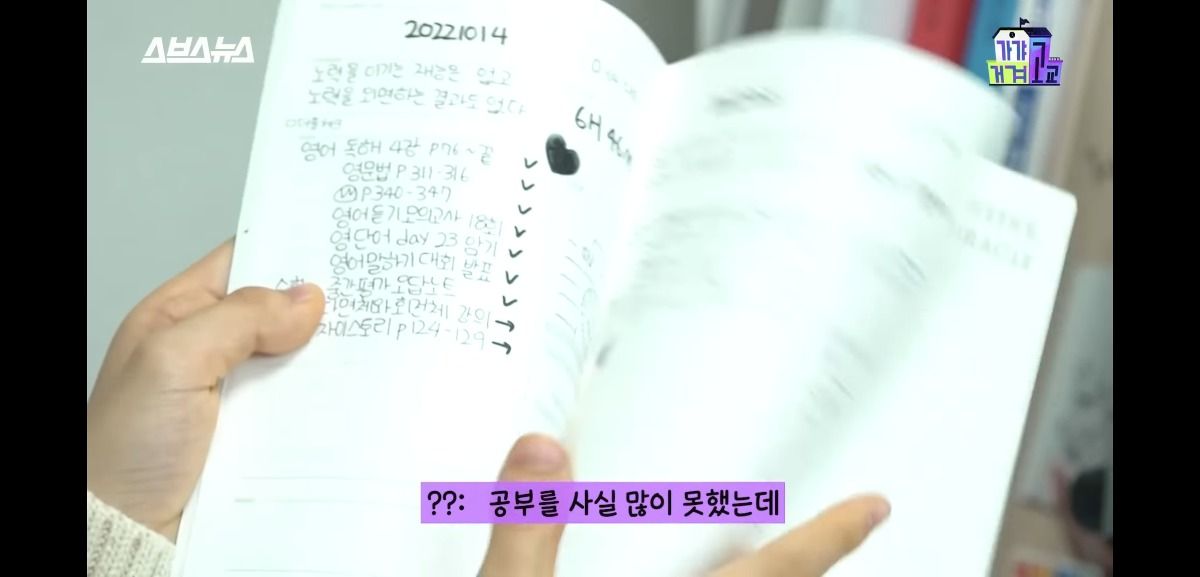 스브스뉴스
가갸
거겨
고교
20221014
노력을 이기는 재능은 없고
노력을 외면하는 결과도 없다
6H
영어 독해 4강 P76~끝
영문법 P311-316
P340-347
영어듣기모의고사 18회
영단어 day 23 암기
영어말하기대회 발표
중간평가 오답노트
강의
자이스토리 P124-129
??: 공부를 사실 많이 못했는데